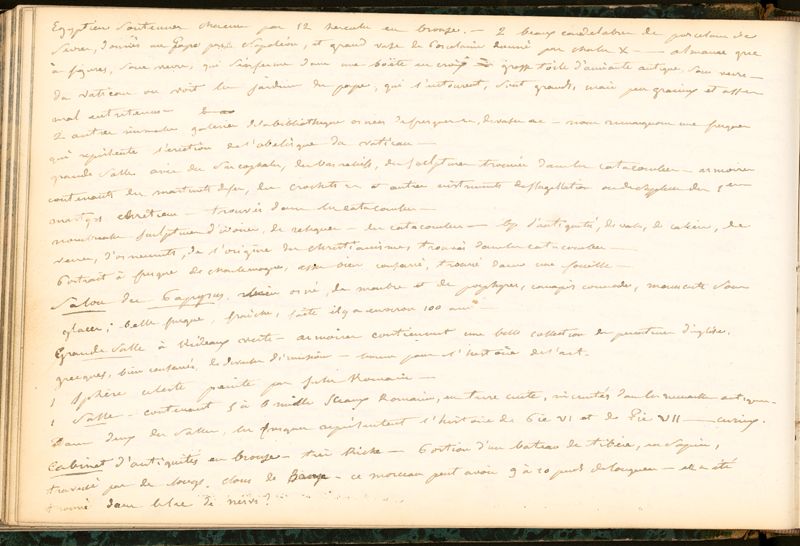 Egyptien soutenues chacune par 12 hercule en bronze. — 2 beaux candelabres de porcelaine de
Sevres, donnés au Pape par Napoléon, et grand vase de Porcelaine donné par charles X — 
à figures, sous verre, qui s'enferme dans une boëte en croix grosse toile d'amiante antique, sous verre —
du vatican on voit les jardins du pape, qui l'entourent, sont grands, mais peu gracieux et assez
mal entretenus
2 autres immenses galeries de la bibliotheque ornées de fresques, de vases &c — nous remarquons une fresque
qui représente l'erection de l'obelisque du vatican —
grande salle avec des Sarcophages, des bas reliefs, des sculptures trouvées dans les catacombes — armoires
contenants des marteaux de fer, des crochets et autres instruments de flagellation ou de supplice des 1ers
martyrs chrétiens — trouvés dans les catacombes —
nombreuses sculptures d'ivoire, de reliques — des catacombes — d'antiquités, de vases, de calices, de
verres, d'ornements, de l'origine du christianisme, trouvés dans les catacombes —
Portrait à fresque de charlemagne, bien conservé, trouvé dans une fouille —
Salon des Papyrus, orné, de marbre et de porphyre, manuscrits sous
glaces; belle fresque, fraiche, faite il y a environ 100 ans —
Grande Salle à Rideaux verts — armoires contiennent une belle collection de peintures d'église,
grecques, bien conservées, de toutes dimensions — bonnes pour l'histoire de l'art.
1 Sphère celeste peinte par Jules Romain —
1 Salle — contenant 5 à 6 mille Sceaux Romains, en terre cuite, incrustés dans les murailles
Dans deux des Salles, les fresques représentent l'histoire de Pie VI et de Pie VII — curieux.
Cabinet d'antiquités en bronze — très Riche — Portion d'un bateau de tibère, en sapin,
traversé par de longs clous de Bronze — ce morceau peut avoir 9 à 10 pieds de longueur — et a été
trouvé dans le lac de nervi?